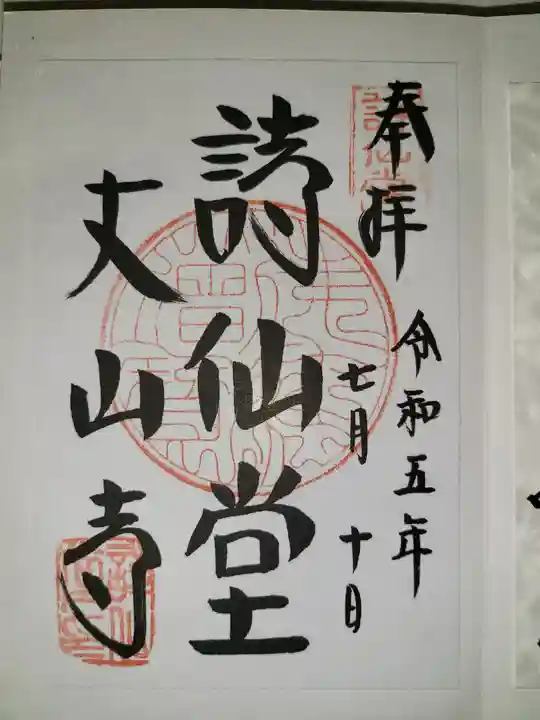 奉拝
詩仙堂
令和五年
七月十日
詩仙堂
丈山寺